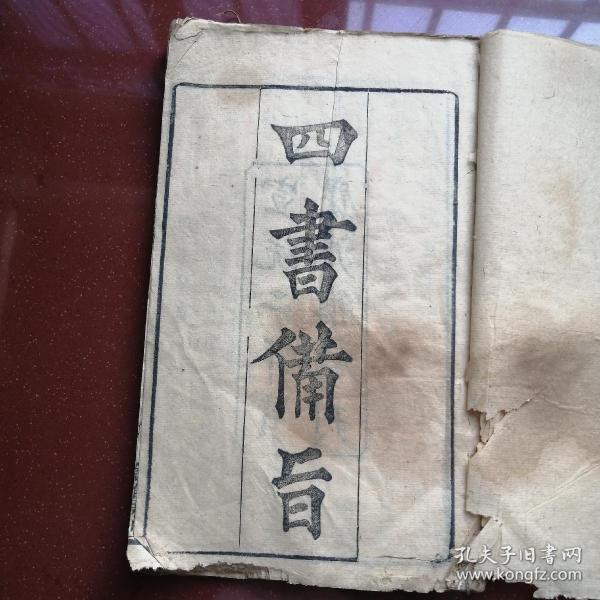 四書備旨
孔夫子旧书网
www.kongfz.com